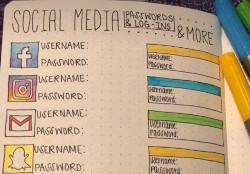 SOCIAL MEDIA PASSWORDS & LOG-INS & MORE
USERNAME:
PASSWORD:
USERNAME:
PASSWORD:
USERNAME:
PASSWORD:
USERNAME:
PASSWORD:
username:
Password:
username:
Password:
username:
Password:
username:
Password: